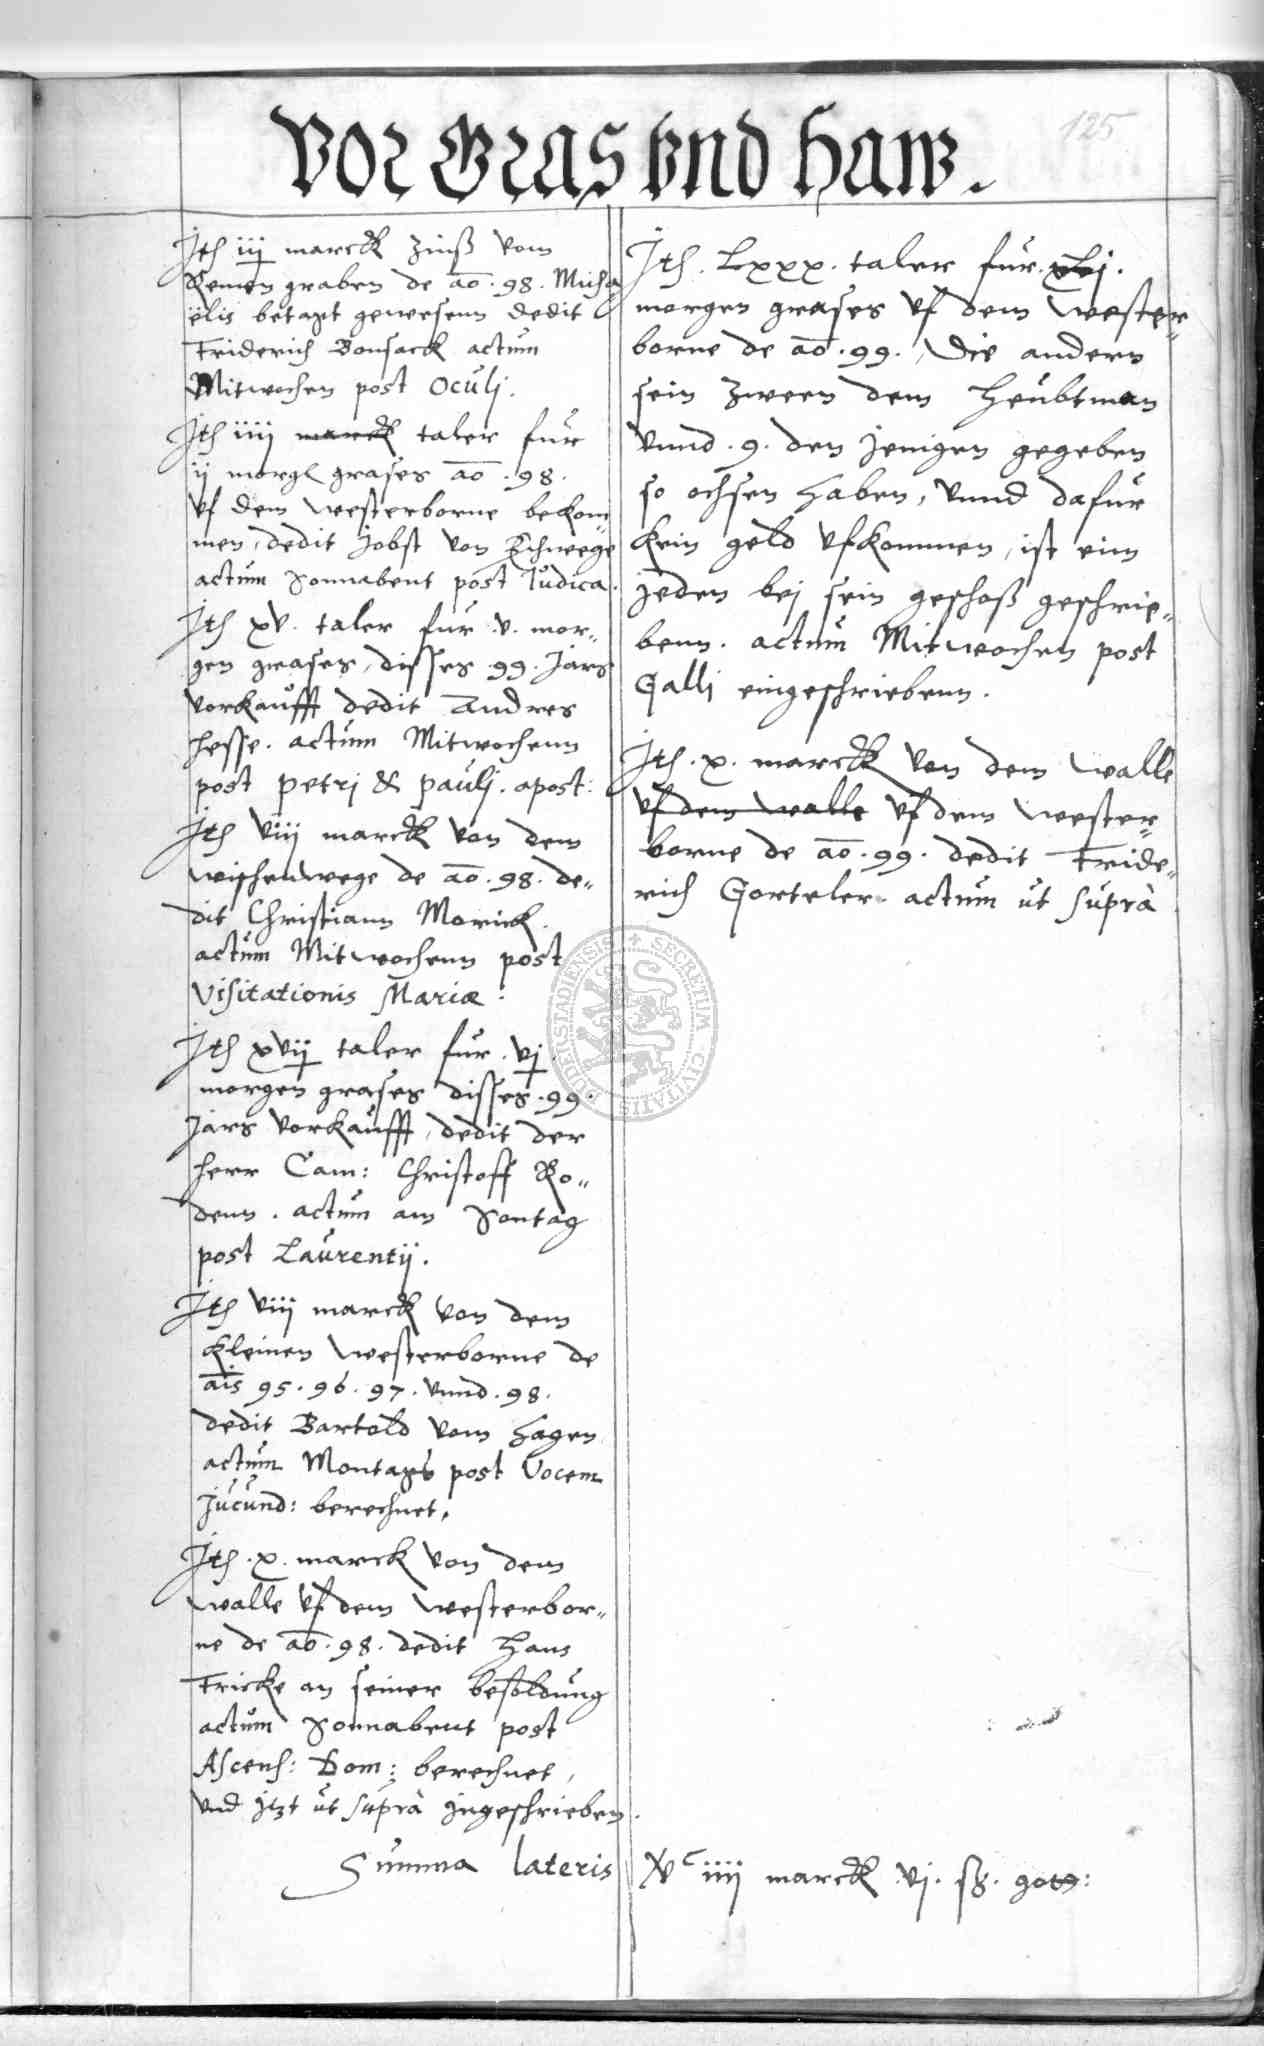 125
Vor Gras vnd Haw.
Ith iij marck Zinß vom
Remen graben de ao. 98. Micha
ëlis betagt gewesenn dedit
Friderich Bonsack actum
Mitwochen post Oculj.
Ith iiij marck taler fur
ij morg grases ao. 98.
vf dem Westerborne bekom
men, dedit Jobst von Eschwege
actum Sonnabent post Judica.
Ith xv. taler fur .v. mor„
gen grases, disses 99. Jars
vorkaufft dedit Andres
Hesse. actum Mitwochenn
post Petri & Paulj. apost:
Ith viij marck von dem
wischenwege de ao. 98. de„
dit Christiann Morick.
actum Mitwochenn post
Visitationis Mariæ.
Ith xvij taler fur .vj.
morgen grases disses .99.
Jars vorkaufft, dedit der
Herr Cam: Christoff Ro„
denn. actum am Sontag
post Laurentij.
Ith viij marck von dem
kleinen Westerborne de
ais 95. 96. 97. vnnd. 98.
dedit Bartold vom Hagen
actum Montags post Vocem
Jucund: berechnet,
Ith .x. marck von dem
walle vf dem Westerbor„
ne de ao. 98. dedit Hans
Fricke an seiner besoldung
actum Sonnabent post
Ascens: Dom: berechnet,
vnd itzt ut supra ingeschrieben.
Ith. Lxxx. taler fur. xlj.
morgen grases vf dem Wester„
borne de ao. 99. Die andern
sein zween dem Heubtman
vnnd .9. den jenigen gegeben
so ochsen haben, vnnd dafur
kein geld vfkommen, ist eim
jeden bej sein geschoß geschrie„
benn. actum Mitwochen post
Galli eingeschriebenn.
Ith. x. marck von dem walle
vf dem walle vf dem Wester„
borne de ao. 99. dedit Fride„
rich Gorteler. actum ut supra
SECRETUM CIVITATIS DUDERSTADIENSIS
Summa lateris xvc iiij marck .vj. ß. gott: